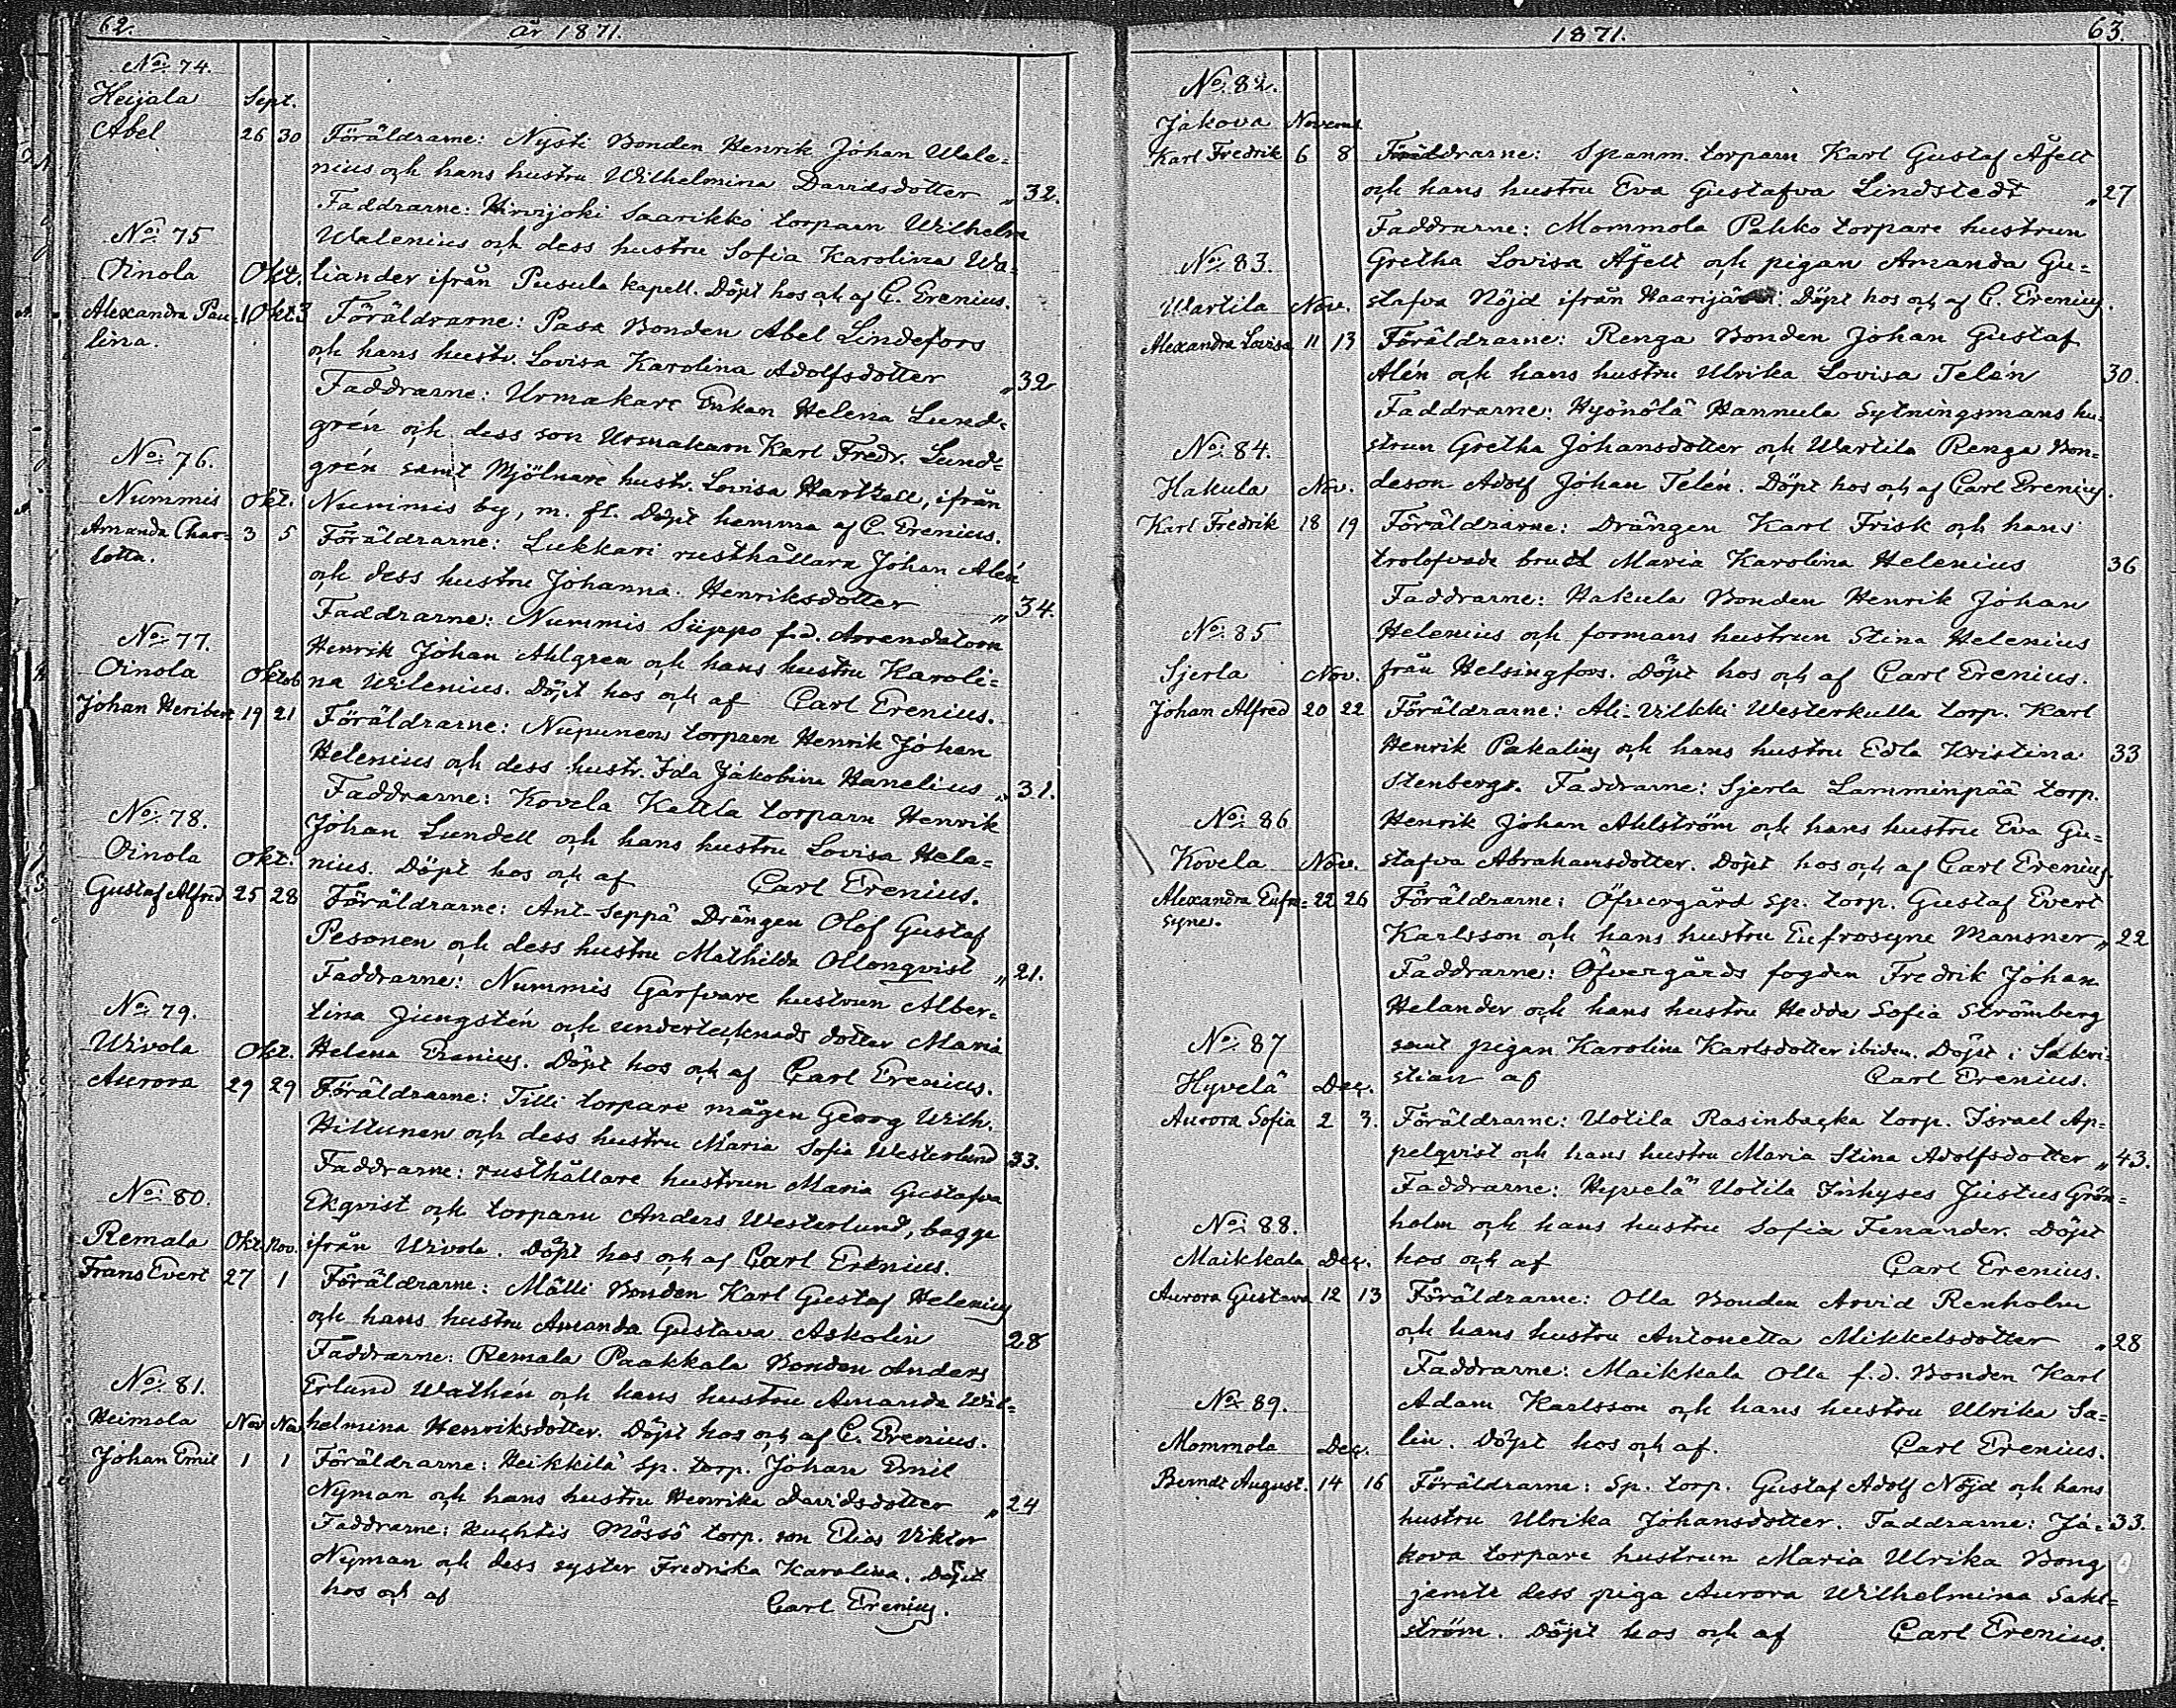 62. år 1871.
No: 74.
Heijala Sept.
Abel 26 30 Föräldrarne: Nysti Bonden Henrik Johan Wale=
nius och hans hustru Wilhelmina Davidsdotter „ 32.
Faddrarne: Hirvijoki Saarikko torparn Wilhelm
No: 75 Walenius och dess hustru Sofia Karolina Wa=
Oinola Okt. liander ifrån Pusula kapell. Döpt hos och af C. Erenius.
Alexandra Pau= 1 Okt 3 Föräldrarne: Pasa Bonden Abel Lindefors
lina. och hans hustr. Lovisa Karolina Adolfsdotter „ 32
Faddrarne: Urmakare Enkan Helena Lund=
grén och dess son Urmakarn Karl Fredr. Lund=
No: 76. grén samt Mjölnare hustr. Lovisa Hartzell, ifrån
Nummis Okt. Nummis by, m. fl. Döpt hemma af C. Erenius.
Amanda Char= 3 5 Föräldrarne: Lukkari rusthållara Johan Alén
lotta. och dess hustru Johanna Henriksdotter „ 34.
Faddrarne: Nummis Siippo f.d. Arrendatorn
No: 77. Henrik Johan Ahlgren och hans hustru Karoli=
Oinola Oktob na Wilenius. Döpt hos och af Carl Erenius.
Johan Heribert 19 21 Föräldrarne: Nupunens torparn Henrik Johan
Helenius och dess hustr. Ida Jakobina Hanelius „ 31.
Faddrarne: Kovela Kattla torparn Henrik
No: 78. Johan Lundell och hans hustru Lovisa Hele=
Oinola Okt. nius. Döpt hos och af Carl Erenius.
Gustaf Alfred 25 28 Föräldrarne: Ant-Seppä Drängen Olof Gustaf
Pesonen och dess hustru Mathilda Ollonqvist „ 21.
Faddrarne: Nummis Garfvare hustrun Alber=
No: 79. tina Ljungstén och undertecknads dotter Maria
Wivola Okt. Helena Erenius. Döpt hos och af Carl Erenius.
Aurora 29 29 Föräldrarne: Tilli torpare mågen Georg Wilh.
Hiltunen och dess hustru Maria Sofia Westerlund 33.
Faddrarne: rusthållare hustrun Maria Gustafva
No: 80. Ekqvist och torparn Anders Westerlund, bagge
Remala Okt. Nov. ifrån Wivola. Döpt hos och af Carl Erenius.
Frans Evert 27 1 Föräldrarne: Mälli Bonden Karl Gustaf Helenius
och hans hustru Amanda Gustava Askolin 28
Faddrarne: Remala Paakkala Bonden Anders
No: 81. Erlund Wathén och hans hustru Amanda Wil=
Heimola Nov Nov. helmina Henriksdotter. Döpt hos och af C. Erenius.
Johan Emil 1 1 Föräldrarne: Heikkilä Sp. torp. Johan Emil
Nyman och hans hustru Henrika Davidsdotter „ 24
Faddrarne: Huhtis Mössö torp. son Elias Viktor
Nyman och dess syster Fredrika Karolina. Döpt
hos och af Carl Erenius.
1871. 63.
No: 82.
Jakova Novemb.
Karl Fredrik 6 8 Föräldrarne: Spanm. torparn Karl Gustaf Åfelt
och hans hustru Eva Gustafva Lindstedt „ 27
Faddrarne: Mommola Pahko torpare hustrun
No: 83. Gretha Lovisa Åfelt och pigan Amanda Gu=
Wartila Nov. stafva Nöjd ifrån Haarijärvi. Döpt hos och af C. Erenius.
Alexandra Lovisa 11 13 Föräldrarne: Renga Bonden Johan Gustaf
Alén och hans hustru Ulrika Lovisa Telén 30.
Faddrarne: Hyönölä Hannula Sytningsmans hu=
No: 84. strun Gretha Johansdotter och Wartila Renga Bon=
Hakula Nov. deson Adolf Johan Telén. Döpt hos och af Carl Erenius.
Karl Fredrik 18 19 Föräldrarne: Drängen Karl Frisk och hans
trolofvade brud Maria Karolina Helenius 36
Faddrarne: Hakula Bonden Henrik Johan
No: 85 Helenius och formans hustrun Stina Helenius
Sjerla Nov. från Helsingfors. Döpt hos och af Carl Erenius.
Johan Alfred 20 22 Föräldrarne: Ali-Vilkki Westerkulla torp. Karl
Henrik Pakalius och hans hustru Edla Kristina 33
Stenbergs. Faddrarne: Sjerla Lamminpää torp.
No: 86 Henrik Johan Ahlström och hans hustru Eva Gu=
Kovela Nov. stafva Abrahamsdotter. Döpt hos och af Carl Erenius.
Alexandra Eufro= 22 26 Föräldrarne: Öfvergård Sp. torp. Gustaf Evert
syne. Karlsson och hans hustru Eufrosyne Mansner „ 22
Faddrarne: Öfvergårds fogden Fredrik Johan
Helander och hans hustru Hedda Sofia Strömberg
No: 87 samt pigan Karolina Karlsdotter ibidem. Döpt i Sakri=
Hyvelä Dec. stian af Carl Erenius.
Aurora Sofia 2 3. Föräldrarne: Uotila Rasinbacka torp. Israel Ap=
pelqvist och hans hustru Maria Stina Adolfsdotter „ 43.
Faddrarne: Hyvelä Uotila Inhyses Justus Grön=
No: 88. holm och hans hustru Sofia Fenander. Döpt
Maikkala Dec. hos och af Carl Erenius.
Aurora Gustava 12 13 Föräldrarne: Olla Bonden Arvid Renholm
och hans hustru Antonetta Mikkelsdotter „ 28
Faddrarne: Maikkala Olla f.d. Bonden Karl
No: 89. Adam Karlsson och hans hustru Ulrika Sa=
Mommola Dec. lin. Döpt hos och af. Carl Erenius.
Berndt August. 14 16 Föräldrarne: Sp. torp. Gustaf Adolf Nöjd och hans
hustru Ulrika Johansdotter. Faddrarne: Ja= 33.
kova torpare hustrun Maria Ulrika Bong
jemte dess piga Aurora Wilhelmina Sahl=
ström. Döpt hos och af Carl Erenius.